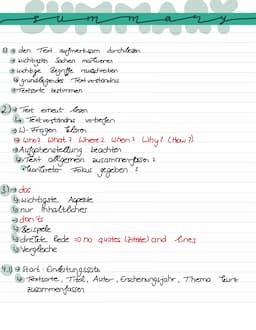 summary
1) → den Text aufmerksam durchlesen
→ wichtigste Sachen markieren
→ wichtige Begriffe rausschreiben
→ grundlegendes Textverständnis
→ Textsorte bestimmen
2) → Text erneut lesen
↳ Textverständnis vertiefen
→ W-Fragen klären
→ Who? What? Where? When? Why? (How?)
→ Aufgabenstellung beachten
↳ Text allgemein zusammenfassen?
konkreter Fokus gegeben?
3) → dos
↳ wichtigste Aspekte
↳ nur Inhaltliches
→ don'ts
↳ Beispiele
↳ direkte Rede => no quotes (Zitate) and lines
↳ Vergleiche
4.1) → Start: Einleitungssatz
↳ Textsorte, Titel, Autor, Erscheinungsjahr, Thema kurz
zusammenfassen